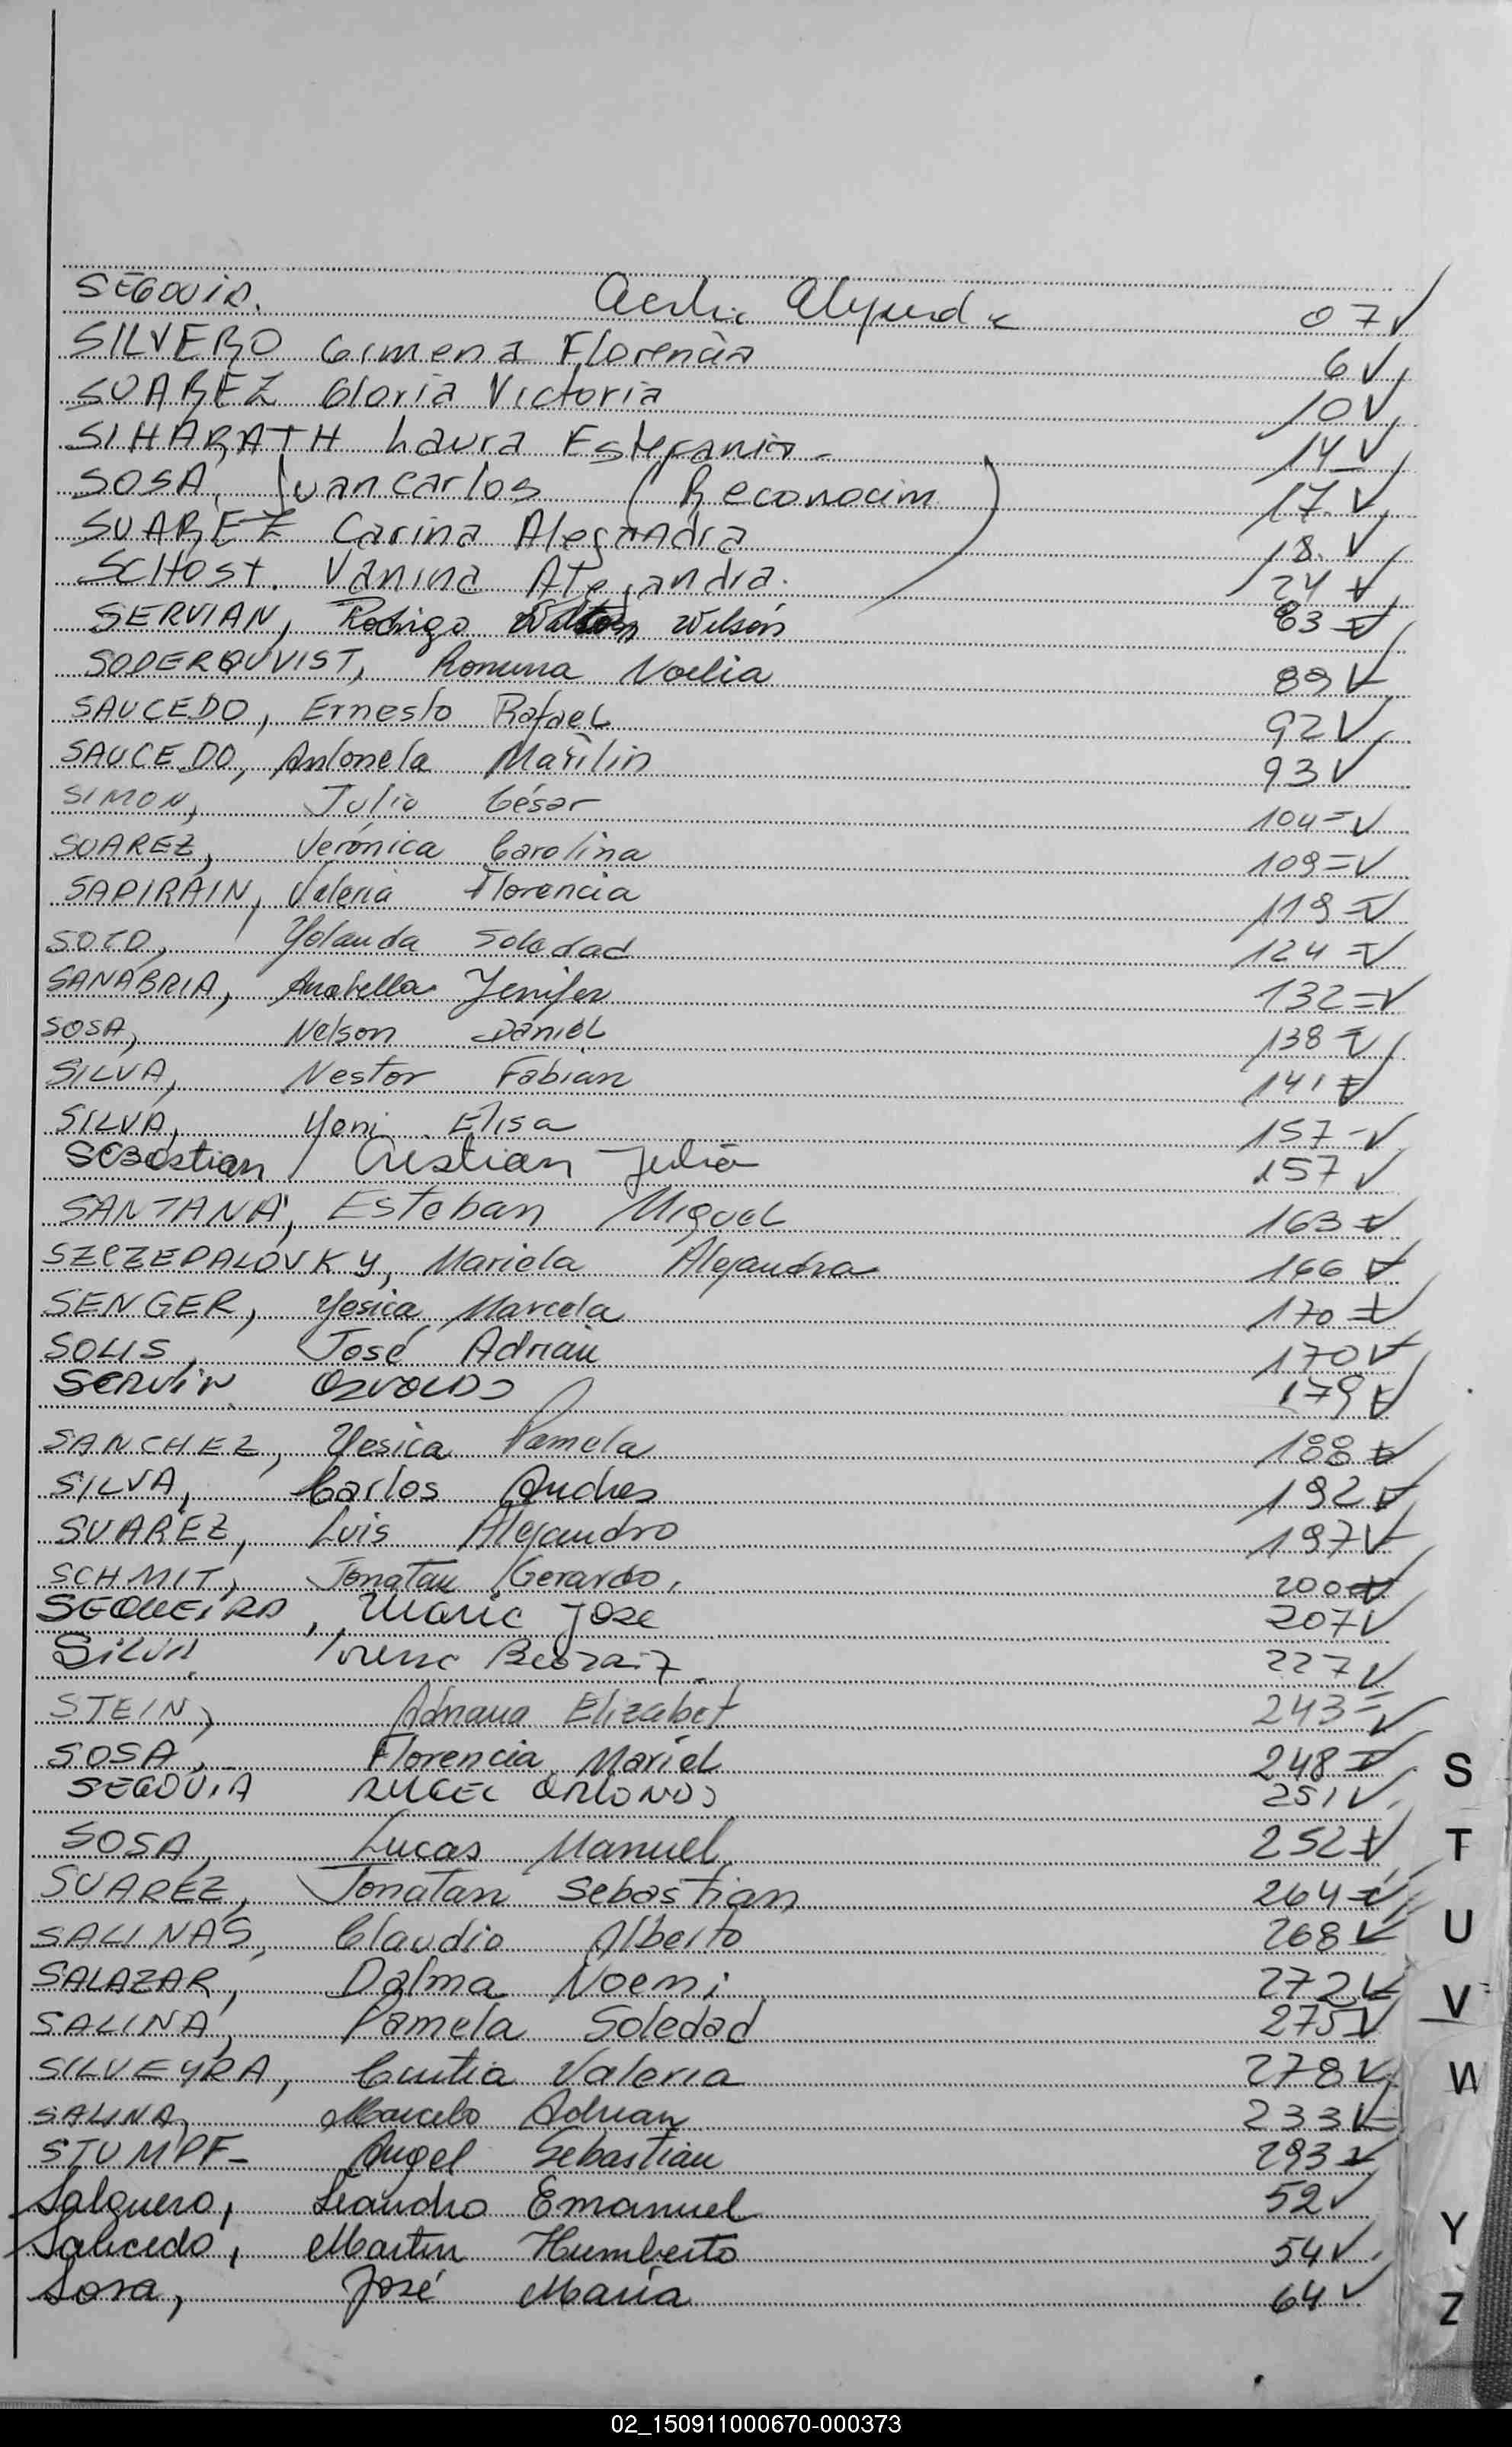 SEGOVIA. 07 ✓
SILVERO Gimena Florencia 6 ✓
SUAREZ Gloria Victoria 10 ✓
SIHARATH Laura Estefania - 14 ✓
SOSA, Juan Carlos (Reconocim) 17. ✓
SUAREZ Carina Alejandra 18. ✓
SCHOST. Vanina Alejandra. 24 ✓
SERVIAN, Rodrigo Wilson 83 = ✓
SODERQUVIST, Romina Noelia 89 ✓
SAUCEDO, Ernesto Rafael 92 ✓
SAUCEDO, Antonela Marilin 93 ✓
SIMON, Julio César 104 = ✓
SUAREZ, Verónica Carolina 109 = ✓
SAPIRAIN, Valeria Florencia 119 = ✓
SOTO, Yolanda Soledad 124 = ✓
SANABRIA, Anabella Jenifer 132 = ✓
SOSA, Nelson Daniel 138 = ✓
SILVA, Nestor Fabian 141 = ✓
SILVA, Yoni Elisa 157 - ✓
Sebastian, Cristian Julia 157 ✓
SANTANA, Esteban Miguel 163 = ✓
SZCZEPALOVKY, Mariela Alejandra 166 = ✓
SENGER, Yesica Marcela 170 = ✓
SOLIS, José Adrian 170 ✓
SERVIN OSVALDO 179 ✓
SANCHEZ, Yesica Pamela 188 = ✓
SILVA, Carlos Andres 192 = ✓
SUAREZ, Luis Alejandro 197 ✓
SCHMIT, Jonatan Gerardo. 200 = ✓
SEQUEIRA, Maria Jose 207 ✓
SILVA. Lorena Beatriz 227 ✓
STEIN, Adriana Elizabet 243 = ✓
SOSA, Florencia Mariel 248 = ✓
SEGOVIA ANGEL ORLANDO 251 ✓
SOSA, Lucas Manuel 252 = ✓
SUAREZ, Jonatan Sebastian 264 = ✓
SALINAS, Claudio Alberto 268 ✓
SALAZAR, Dalma Noemi 272 ✓
SALINA, Pamela Soledad 275 ✓
SILVEYRA, Cintia Valeria 278 ✓
SALINA, Marcelo Adrian 233 ✓
STUMPF - Angel Sebastian 293 = ✓
Salguero, Leandro Emanuel 52 ✓
Salicedo, Martin Humberto 54 ✓
Sosa, José Maria 64 ✓
S
T
U
V
W
Y
Z
02_150911000670-000373